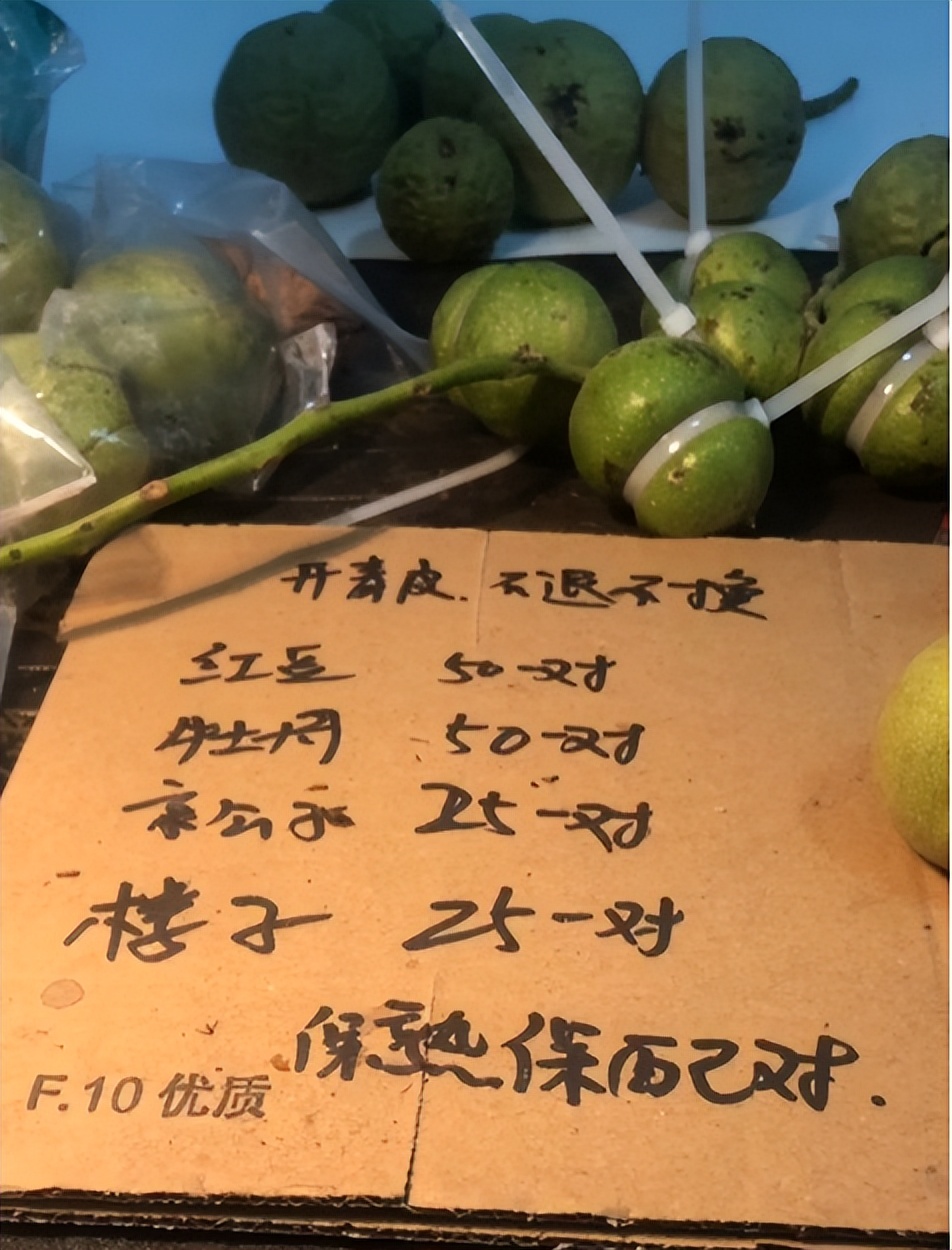 开青皮.不退不换
红豆 50一对
牡丹 50一对
京公子 25一对
楼子 25一对
保熟保面已对.
F.10 优质